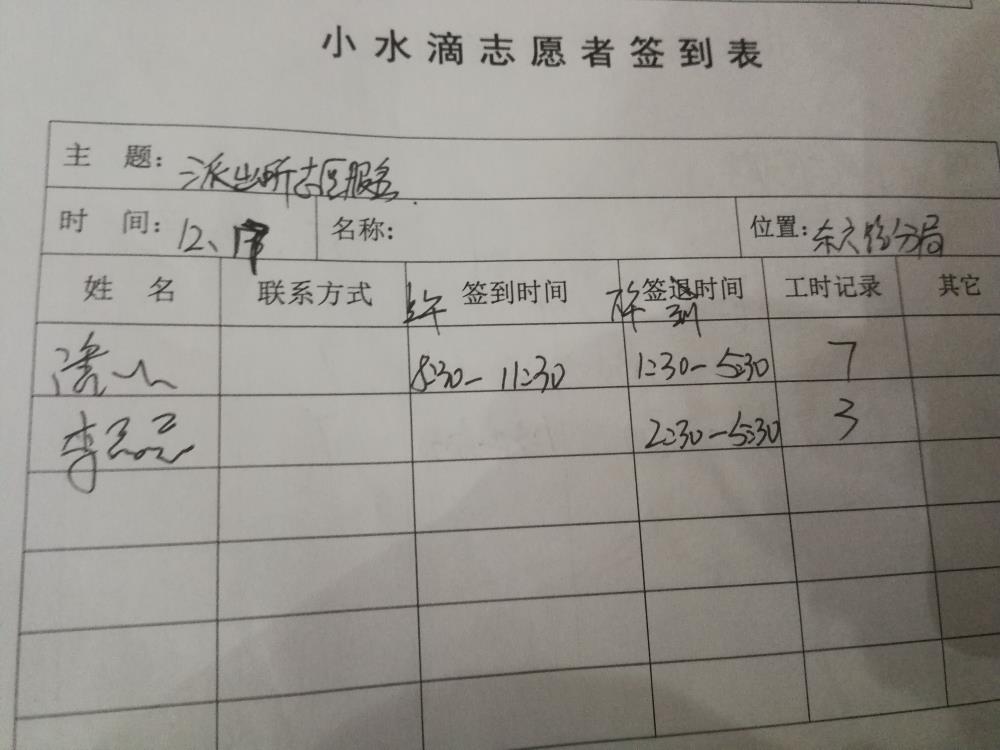 小水滴志愿者签到表
主 题: 派出所志愿服务
时 间: 12、 名称: 位置: 分局
姓 名 联系方式 上午 签到时间 下午 签退时间 工时记录 其它
8:30-11:30 1:30-5:30 7
李 2:30-5:30 3